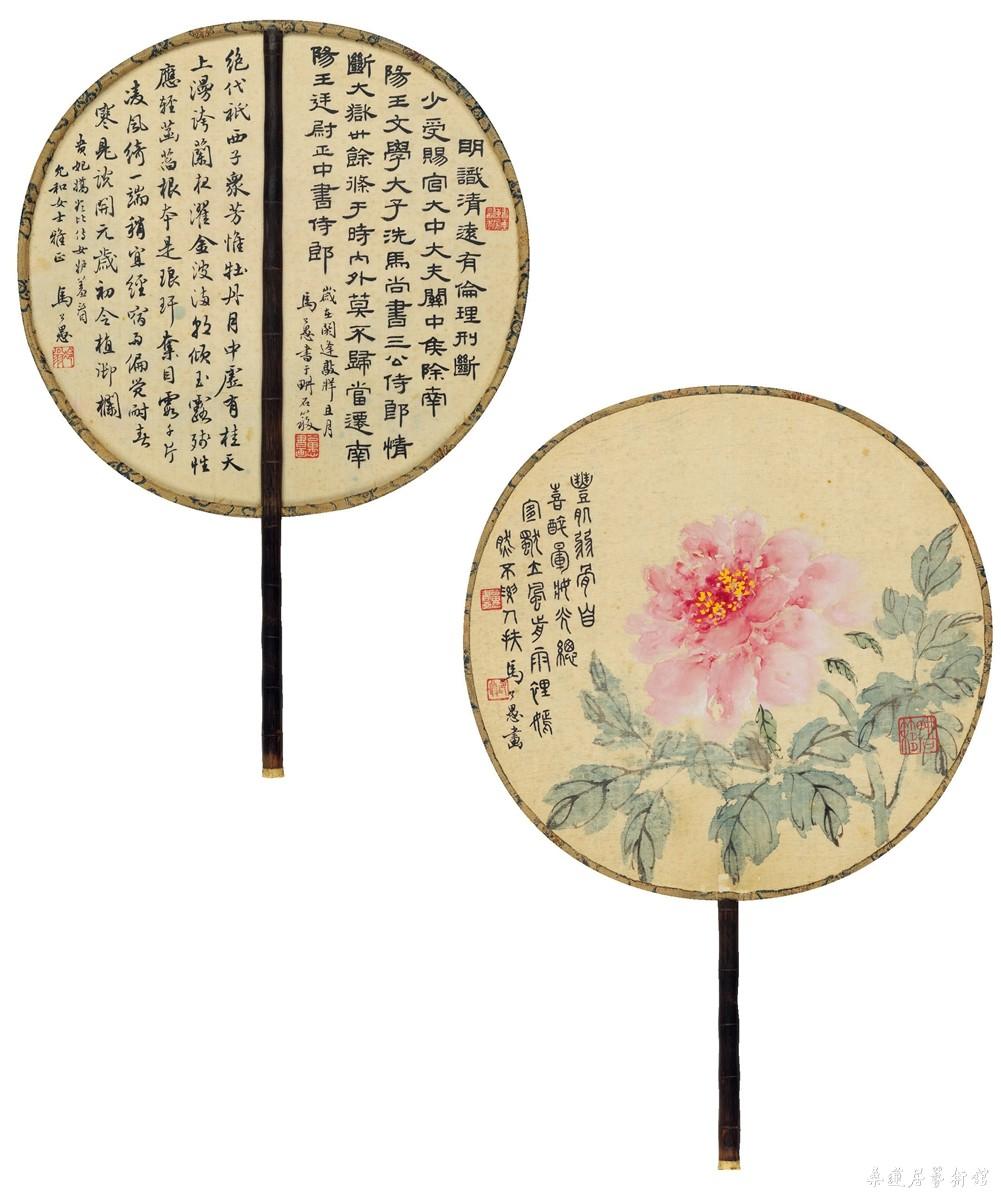 明識清遠有倫理刑斷
少受賜官大中大夫關中侯除南
陽王文學大子洗馬尚書三公侍郎情
斷大獄卅餘條于時內外莫不歸當遷南
陽王廷尉正中書侍郎
歲在閼逢敦牂且月
馬公愚書于畊石簃
絕代祇西子眾芳惟牡丹月中虛有桂天
上漫誇蘭夜濯金波滿朝傾玉露殘性
應輕菡萏根本是琅玕奪目霞千片
凌風綺一端稍宜經宿雨偏覺耐春
寒見說開元歲初令植御欄
貴妃嬌欲比侍女妒羞看
允和女士雅正
馬公愚
豐肌弱骨自
喜醉暈妝光總
宜獨立風前雨裡嫣
然不要人扶
馬公愚畫
桑蓮居藝術館